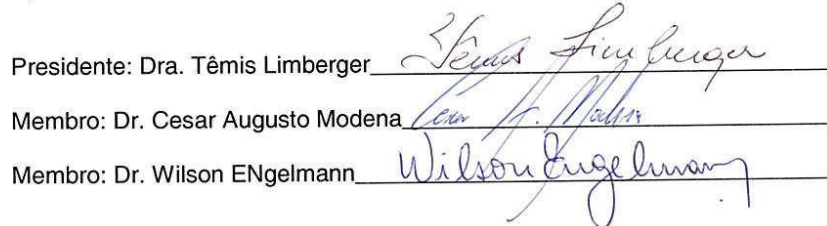 Presidente: Dra. Têmis Limberger Têmis Limberger
Membro: Dr. Cesar Augusto Modena Cesar A. Modena
Membro: Dr. Wilson ENgelmann Wilson Engelmann